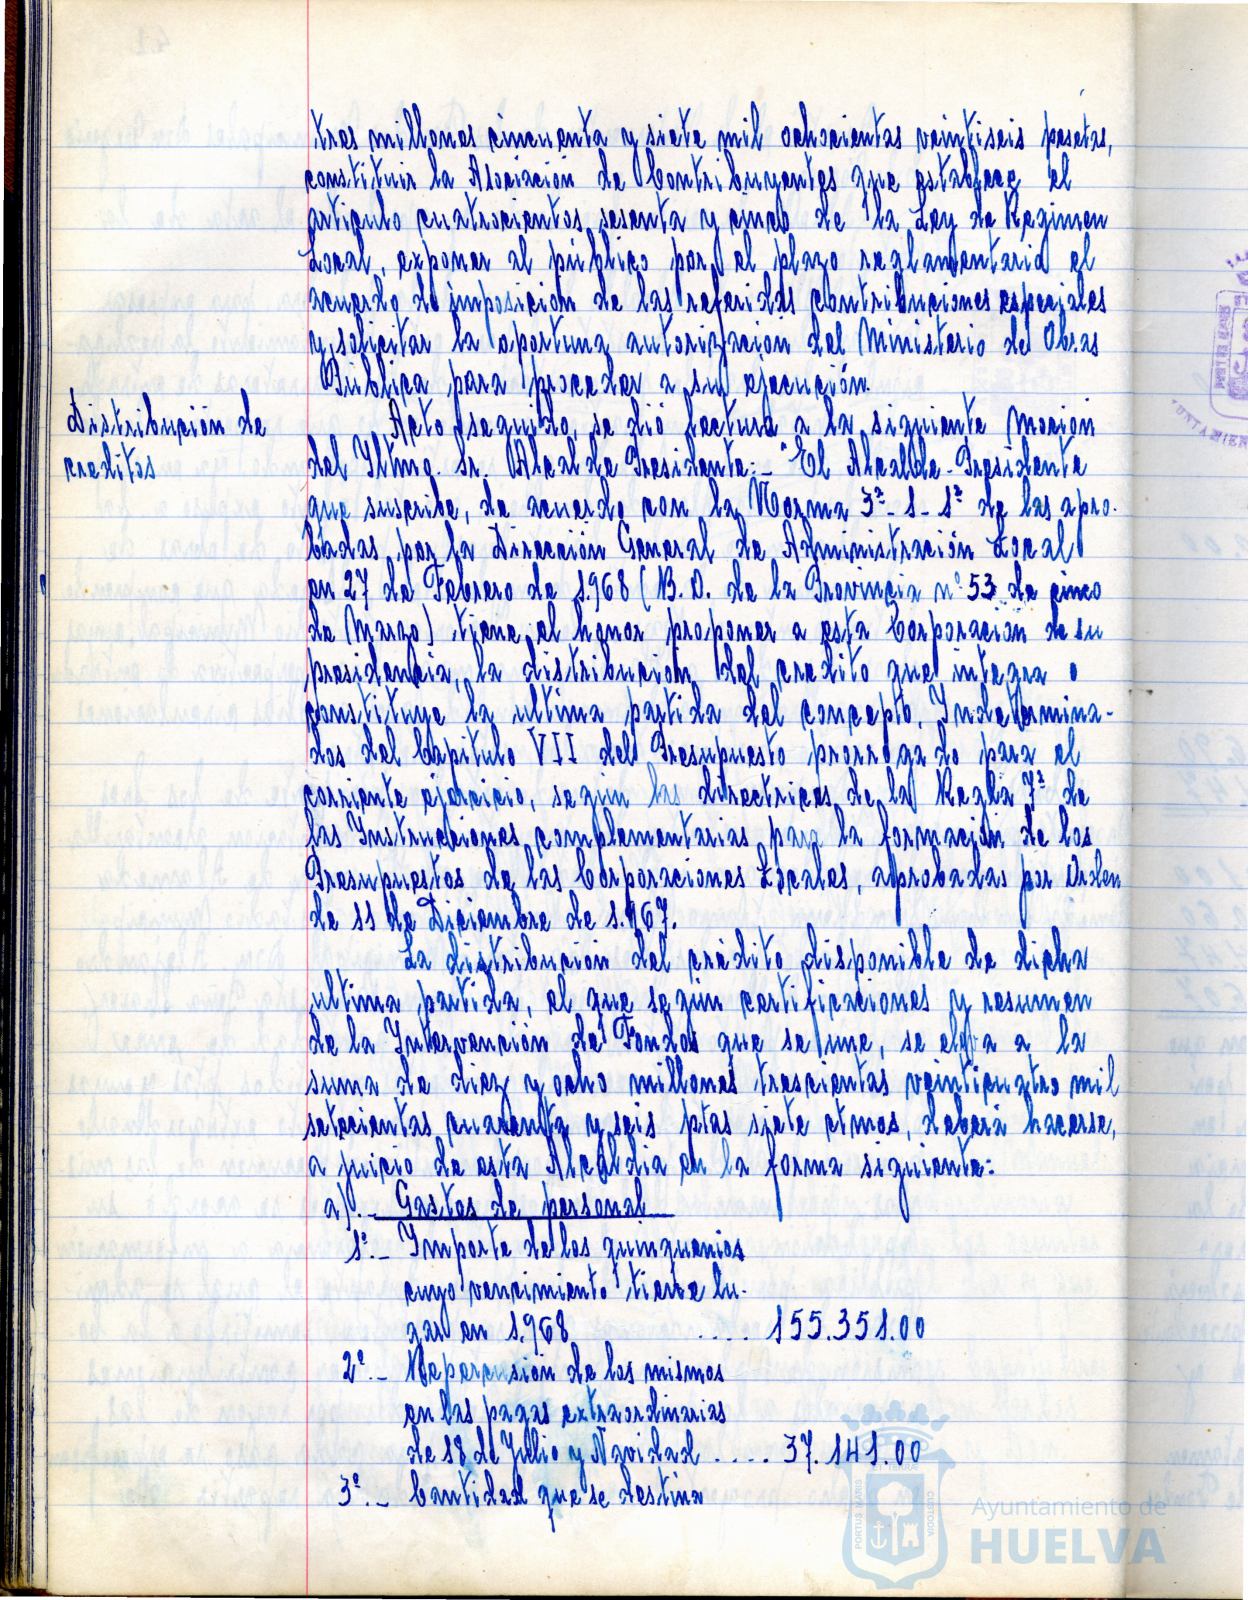 tres millones cincuenta y siete mil ochocientas veintiseis pesetas,
constituir la Asociación de Contribuyentes que establece el
articulo cuatrocientos sesenta y cinco de la Ley de Regimen
Local, exponer al público por el plazo reglamentario el
acuerdo de imposición de las referidas contribuciones especiales
y solicitar la oportuna autorización del Ministerio de Obras
Pública para proceder a su ejecución.
Distribución de
creditos
Acto seguido, se dió lectura a la siguiente Moción
del Iltmo. Sr. Alcalde Presidente:- "El Alcalde-Presidente
que suscribe, de acuerdo con la Norma 3ª-1-1ª de las apro-
badas por la Dirección General de Administración Local
en 27 de Febrero de 1.968 (B.O. de la Provincia nº 53 de cinco
de Marzo) tiene el honor proponer a esta Corporación de su
presidencia, la distribución del credito que integra o
constituye la ultima partida del concepto, Indetermina-
dos del Capitulo VII del Presupuesto prorrogado para el
corriente ejercicio, según las directrices de la Regla 7ª de
las Instrucciones complementarias para la formación de los
Presupuestos de las Corporaciones Locales, aprobadas por Orden
de 11 de Diciembre de 1.967.
La distribución del crédito disponible de dicha
ultima partida, el que según certificaciones y resumen
de la Intervención de Fondos que se une, se eleva a la
suma de diez y ocho millones trescientas veinticuatro mil
setecientas cuarenta y seis ptas siete ctmos, deberá hacerse,
a juicio de esta Alcaldia en la forma siguiente:
a).- Gastos de personal
1º.- Importe de los quinquenios
cuyo vencimiento tiene lu-
gar en 1.968 .... 155.351.00
2º.- Repercusión de los mismos
en las pagas extraordinarias
de 18 de Julio y Navidad .... 37.141.00
3º.- Cantidad que se destina
PORTUS MARIS
CUSTODIA
Ayuntamiento de
HUELVA